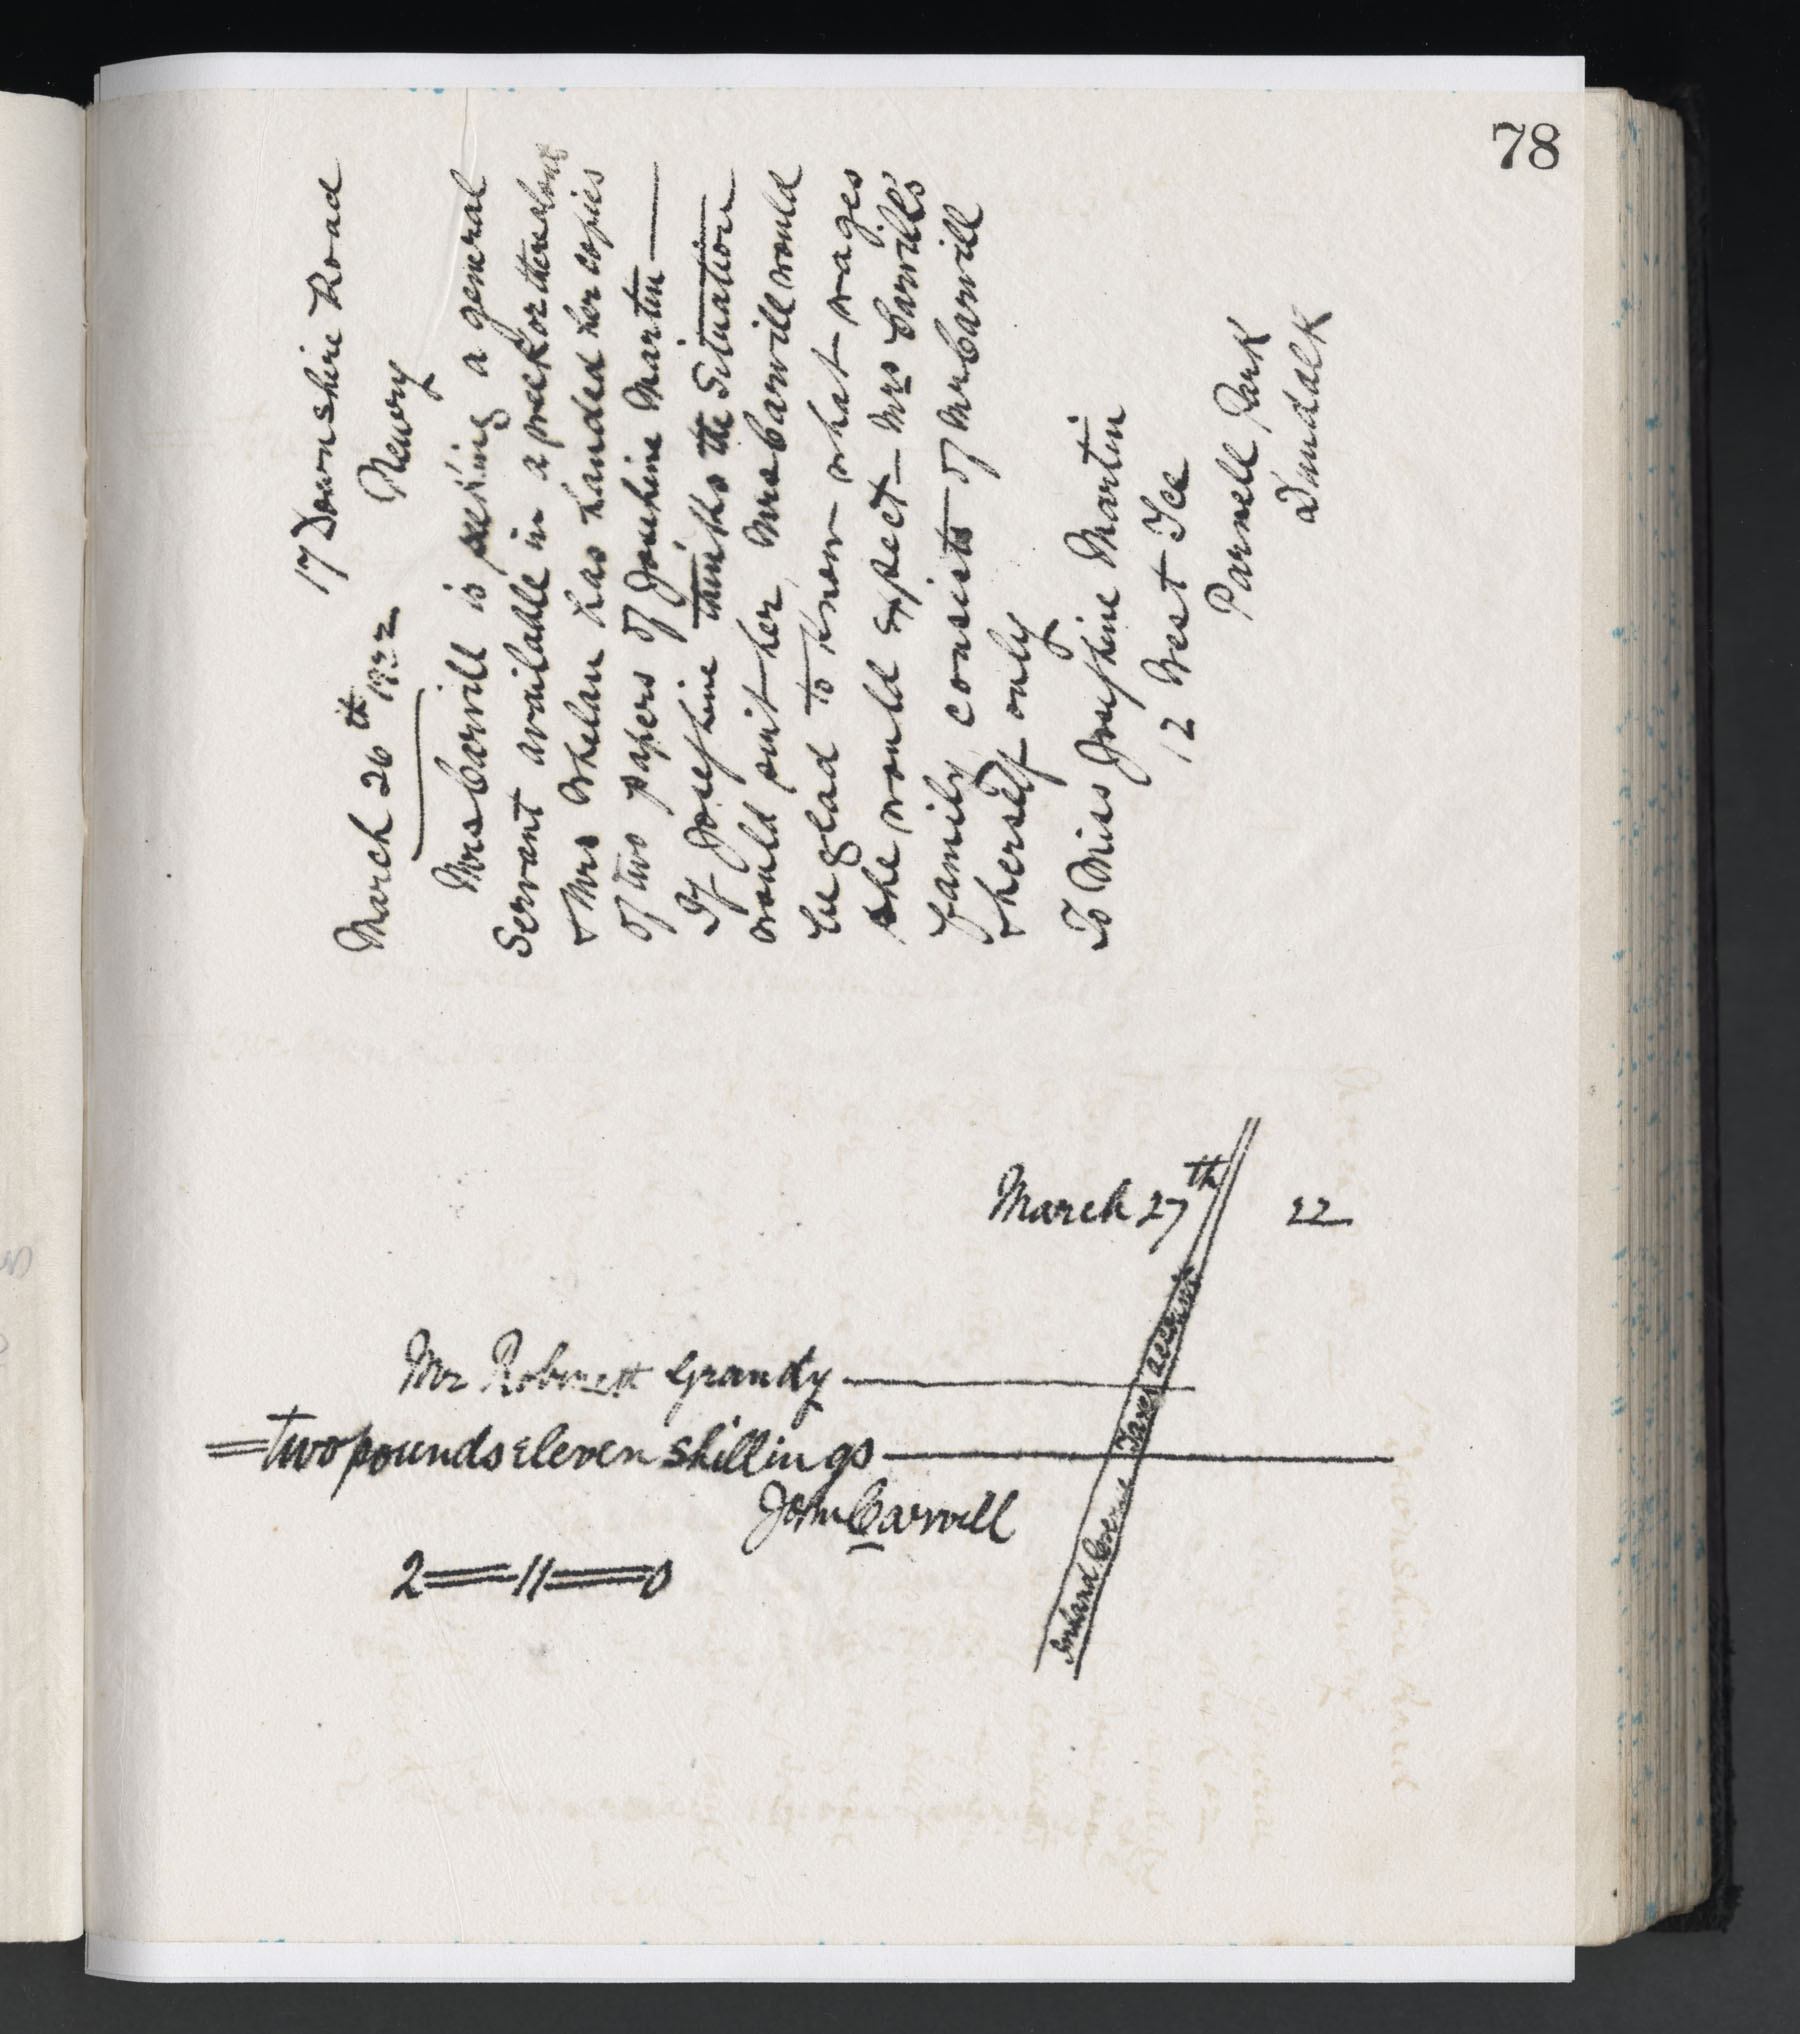 78
17 Downshire Road
Newry
March 26th 1922
Mrs Carvill is seeking a general
Servant available in a week or thereabout
& Mrs Whelan has handed her copies
of two papers of Josephine Martin —
If Josephine thinks the Situation
would suit her, Mrs Carvill would
be glad to know what wages
she would expect — Mrs Carvill's
family consists of Mr Carvill
& herself only
To Miss Josephine Martin
12 West Tce
Parnell Park
Dundalk
March 27th 22
Mr Grandy
two pounds eleven shillings
John Carvill
2 = 11 = 0
Inland Taxes account